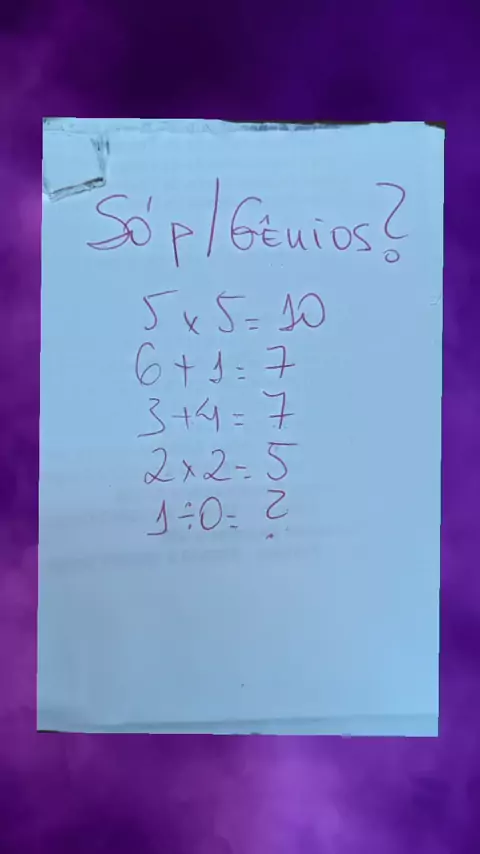 Só p/ Gênios?
5 x 5 = 10
6 + 1 = 7
3 + 4 = 7
2 x 2 = 5
1 ÷ 0 = ?